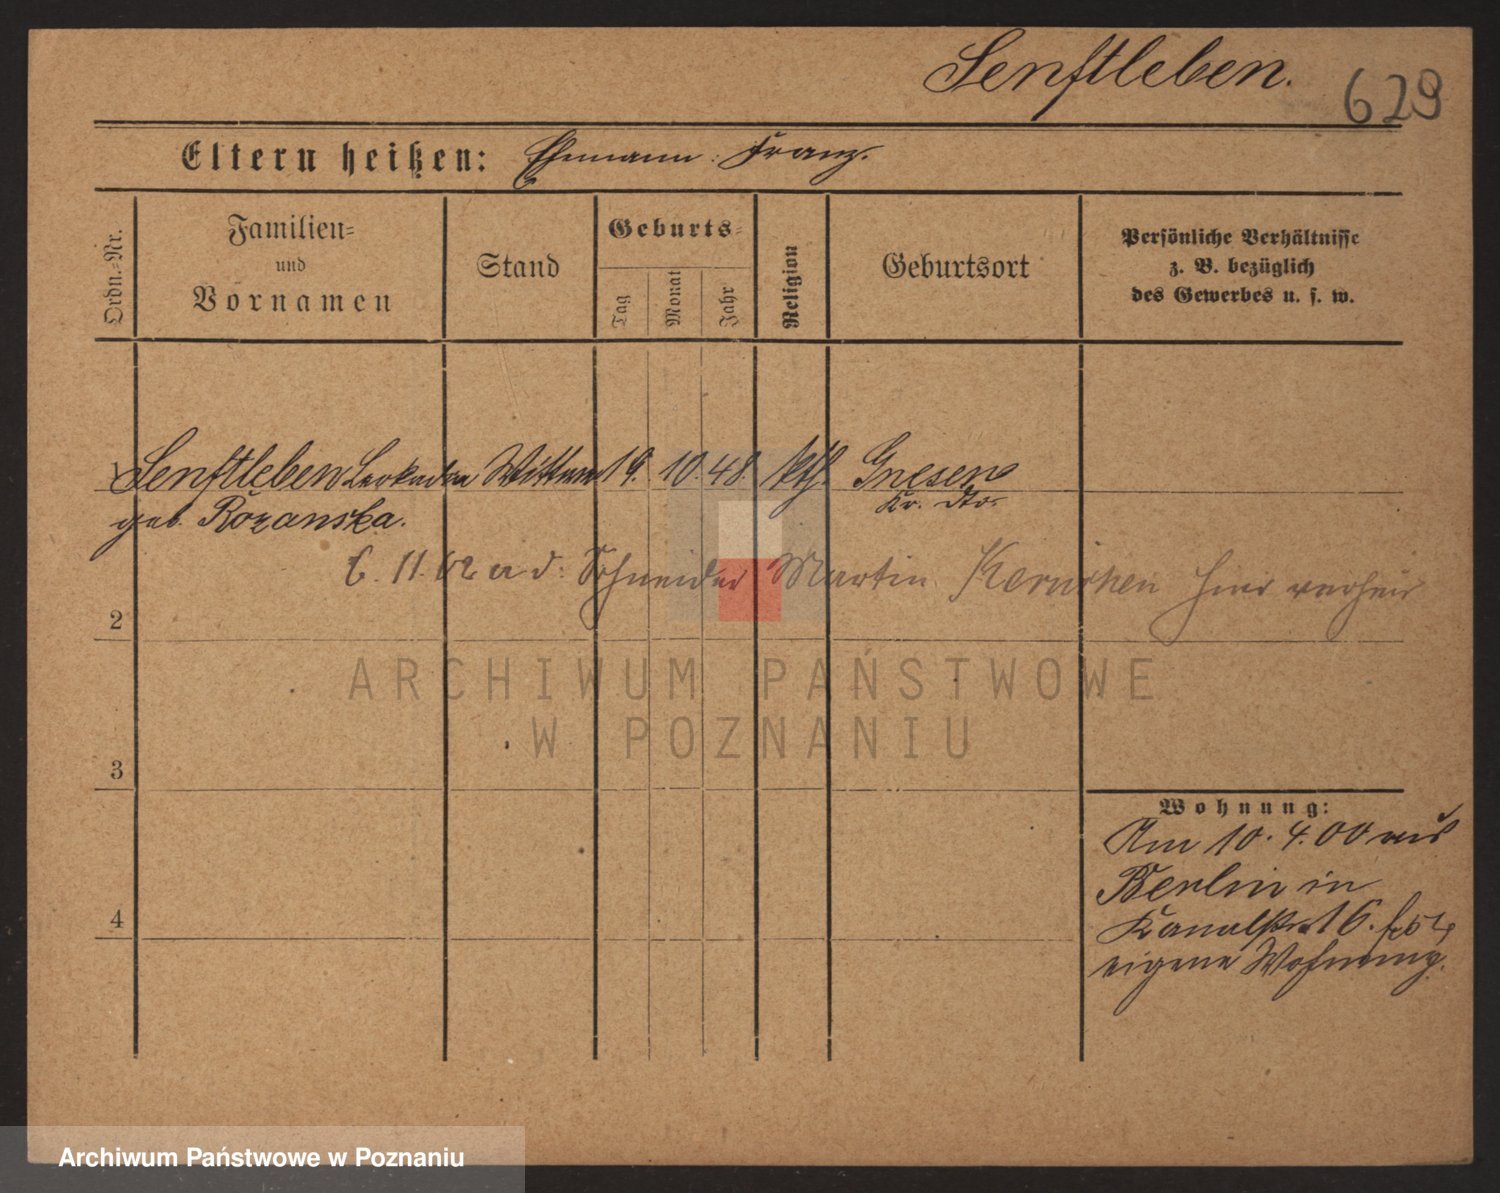 Senftleben.
629
Eltern heißen: Ehemann: Franz.
Ordn.-Nr.
Familien-
und
Vornamen
Stand
Geburts-
Tag
Monat
Jahr
Religion
Geburtsort
Persönliche Verhältnisse
z. B. bezüglich
des Gewerbes u. s. w.
1 Senftleben Leokadia Wittwe 19. 10. 48. kth. Gnesen
geb. Rozanska. Kr. dto.
6. 11. 02 a d. Schneider Martin hier verheir
2
3
4
ARCHIWUM PAŃSTWOWE
W POZNANIU
Wohnung:
Am 10. 4. 00 aus
Berlin in
Kanalstr 16.
eigene Wohnung.
Archiwum Państwowe w Poznaniu